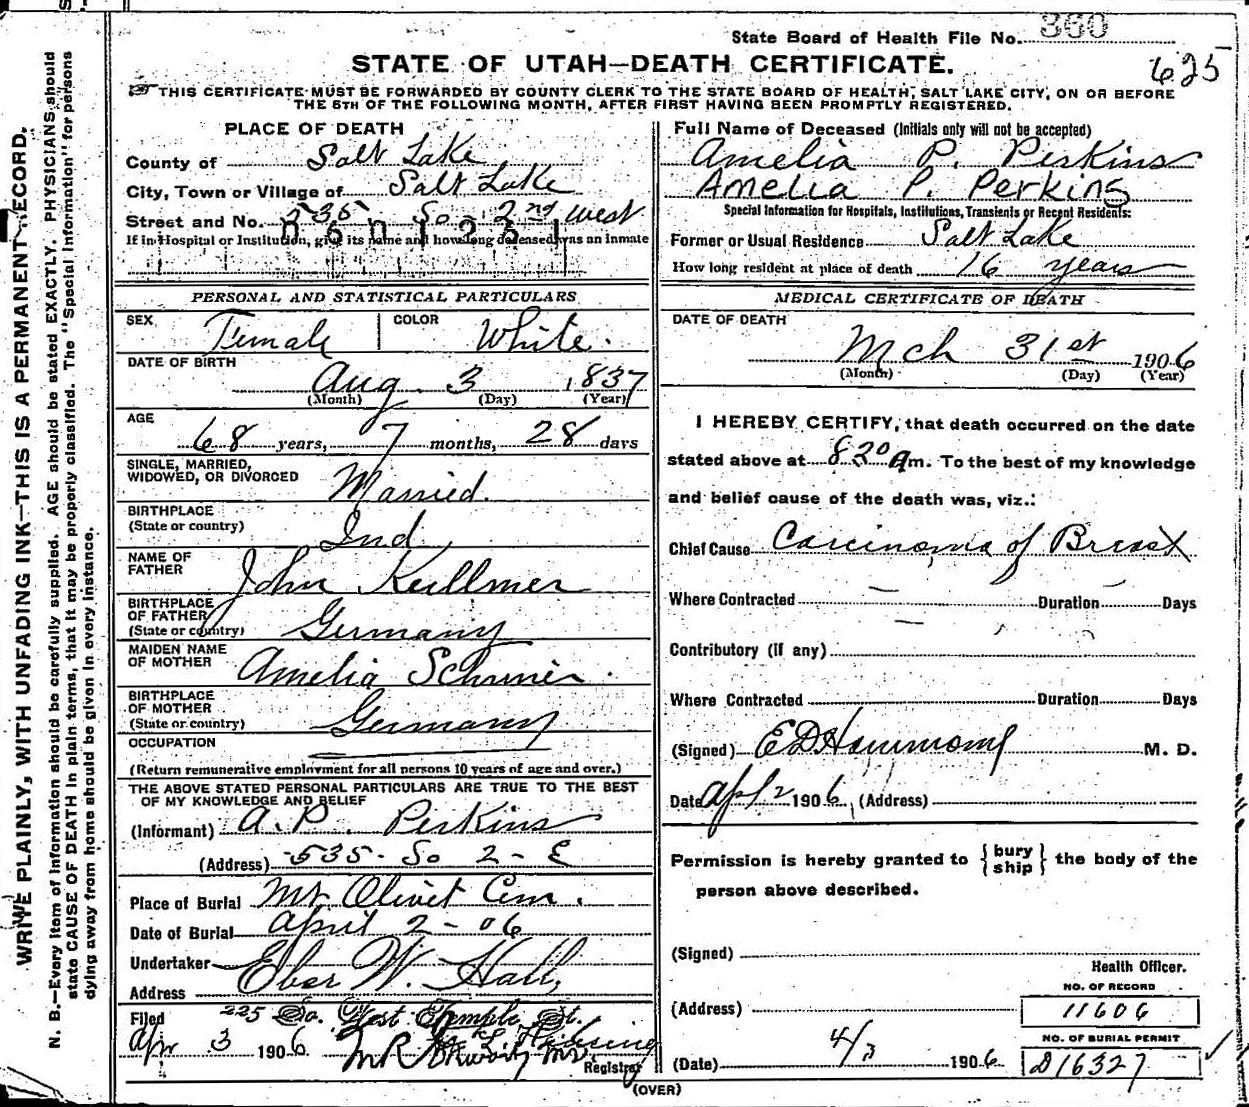 State Board of Health File No. 360
STATE OF UTAH—DEATH CERTIFICATE.
625
THIS CERTIFICATE MUST BE FORWARDED BY COUNTY CLERK TO THE STATE BOARD OF HEALTH, SALT LAKE CITY, ON OR BEFORE
THE 5TH OF THE FOLLOWING MONTH, AFTER FIRST HAVING BEEN PROMPTLY REGISTERED.
PLACE OF DEATH
County of Salt Lake
City, Town or Village of Salt Lake
Street and No. 535 So. 2nd West
If in Hospital or Institution, give its name and how long deceased was an inmate
0601261
PERSONAL AND STATISTICAL PARTICULARS
SEX Female COLOR White.
DATE OF BIRTH
Aug. 3 1837
(Month) (Day) (Year)
AGE
68 years, 7 months, 28 days
SINGLE, MARRIED,
WIDOWED, OR DIVORCED Married.
BIRTHPLACE
(State or country) Ind
NAME OF
FATHER John Kullmer
BIRTHPLACE
OF FATHER
(State or country) Germany
MAIDEN NAME
OF MOTHER Amelia
BIRTHPLACE
OF MOTHER
(State or country) Germany
OCCUPATION
(Return remunerative employment for all persons 10 years of age and over.)
THE ABOVE STATED PERSONAL PARTICULARS ARE TRUE TO THE BEST
OF MY KNOWLEDGE AND BELIEF
(Informant) A. P. Perkins
(Address) 535 So 2 - E
Place of Burial Mt Olivet Cem.
Date of Burial April 2 - 06
Undertaker Eber W. Hall,
Address
225 So. West Temple St.
Filed
Apr 3 1906
Registrar
Full Name of Deceased (Initials only will not be accepted)
Amelia P. Perkins
Amelia P. Perkins
Special Information for Hospitals, Institutions, Transients or Recent Residents:
Former or Usual Residence Salt Lake
How long resident at place of death 16 years
MEDICAL CERTIFICATE OF DEATH
DATE OF DEATH
Mch 31st 1906
(Month) (Day) (Year)
I HEREBY CERTIFY, that death occurred on the date
stated above at 8 30 a m. To the best of my knowledge
and belief cause of the death was, viz.:
Chief Cause Carcinoma of Breast
Where Contracted — Duration — Days
Contributory (if any)
Where Contracted Duration Days
(Signed) E D Hammond M. D.
Date Apl 2 1906, (Address)
Permission is hereby granted to { bury ship } the body of the
person above described.
(Signed)
Health Officer.
(Address)
NO. OF RECORD
11606
NO. OF BURIAL PERMIT
D16327
(Date) 4/3 1906
(OVER)
WRITE PLAINLY, WITH UNFADING INK—THIS IS A PERMANENT RECORD.
N. B.—Every item of information should be carefully supplied. AGE should be stated EXACTLY. PHYSICIANS should
state CAUSE OF DEATH in plain terms, that it may be properly classified. The "Special Information" for persons
dying away from home should be given in every instance.